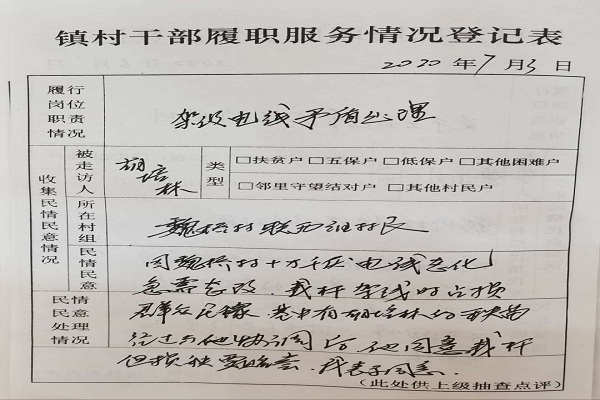 镇村干部履职服务情况登记表
2020年7月3日
履行岗位职责情况
架设电线矛盾处理
收集民情民意情况
被走访人
胡培林
类型
□扶贫户□五保户□低保户□其他困难户
□邻里守望结对户□其他村民户
所在村组
魏桥村联西组村民
民情民意
因魏桥村十万千伏电线老化
急需在改，栽杆架线时占损
民情民意处理情况
经过与他协调后他同意栽杆
但损失要赔。我表示同意。
(此处供上级抽查点评)